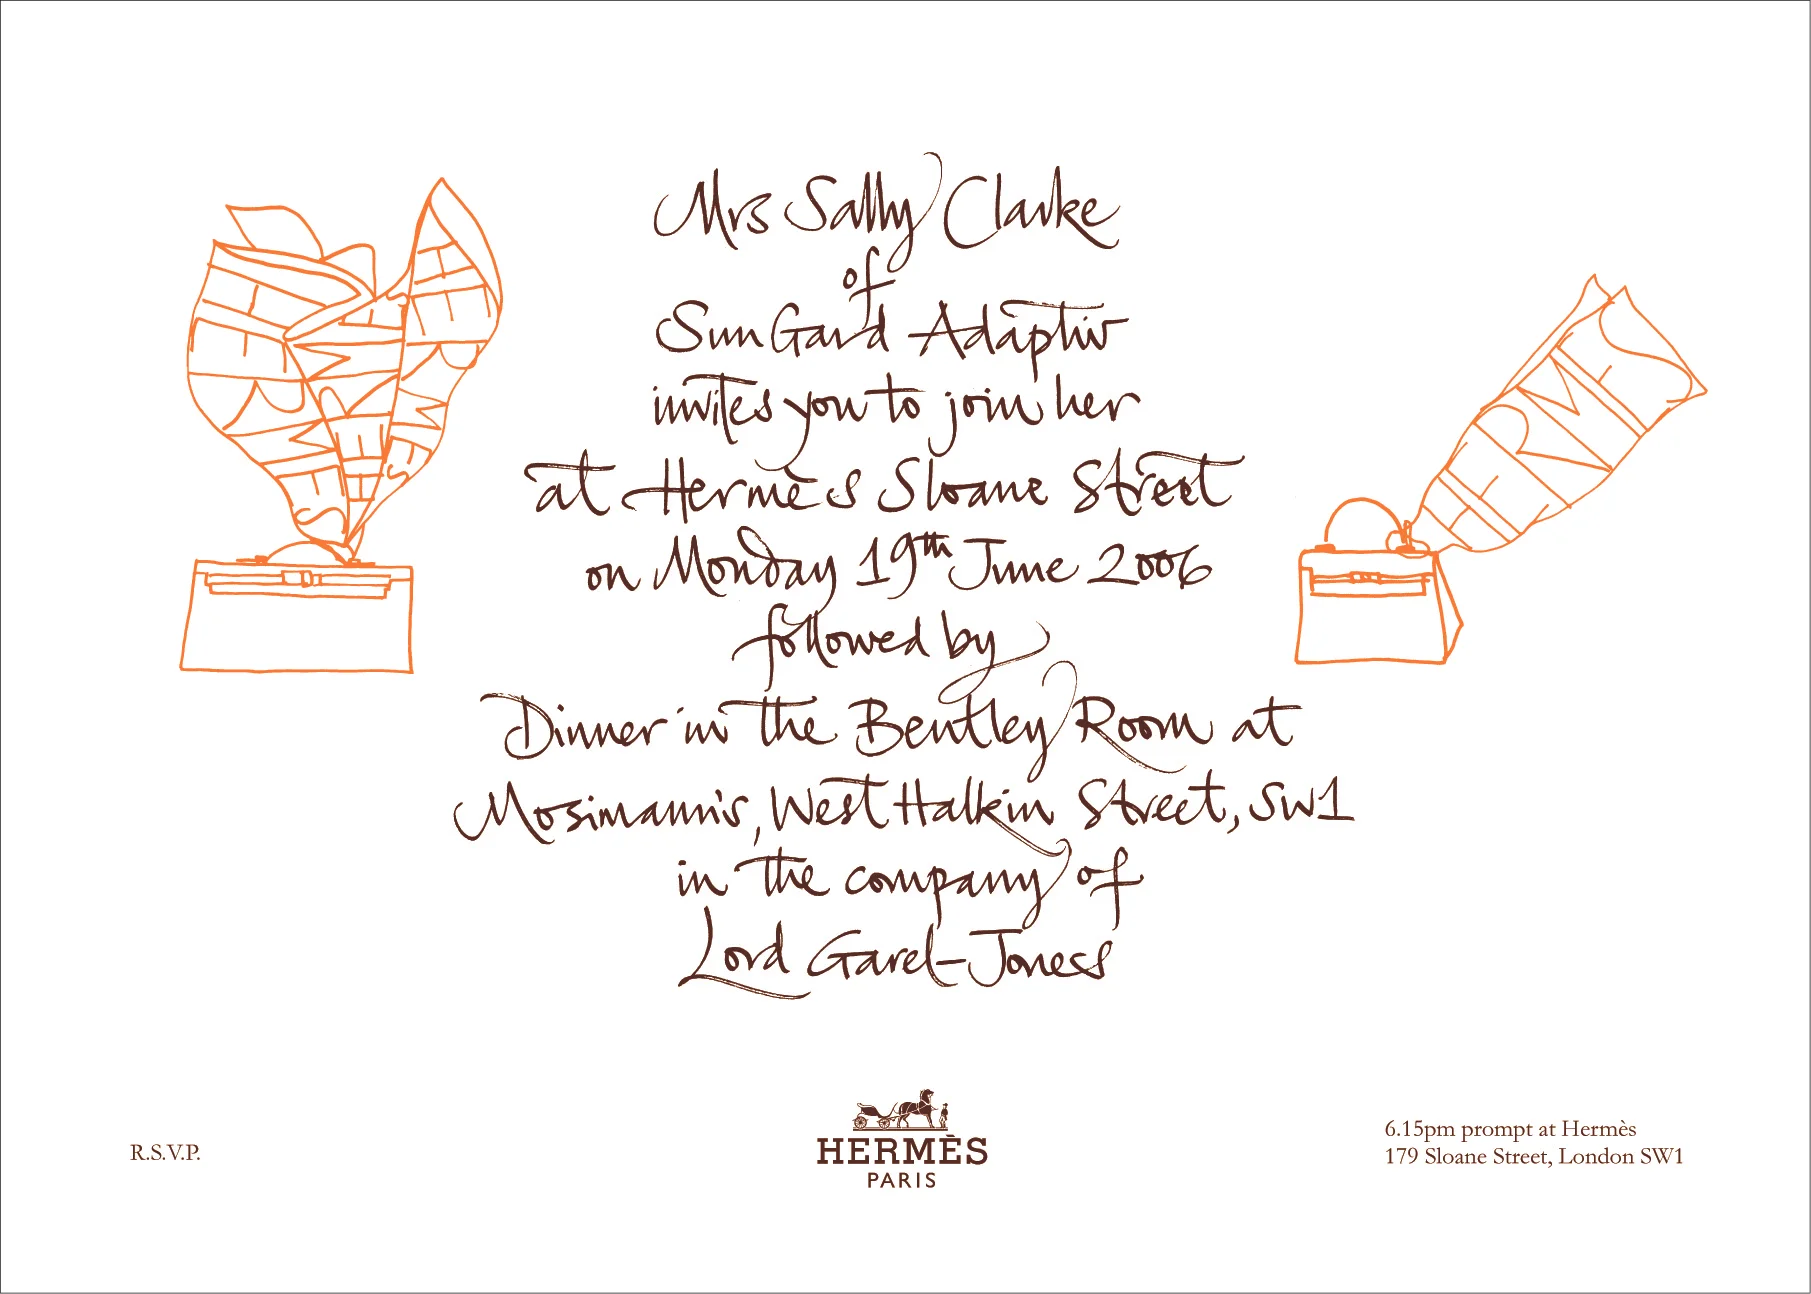 Mrs Sally Clarke
of
SunGard Adaptiv
invites you to join her
at Hermès Sloane Street
on Monday 19th June 2006
followed by
Dinner in the Bentley Room at
Mosimann's, West Halkin Street, SW1
in the company of
Lord Garel-Jones
HERMES
R.S.V.P.
HERMÈS
PARIS
6.15pm prompt at Hermès
179 Sloane Street, London SW1